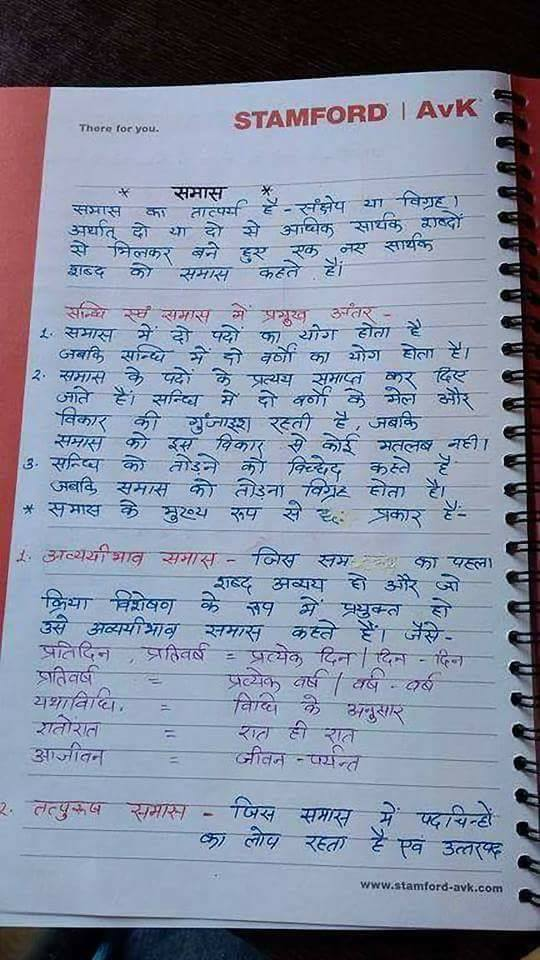 There for you.
STAMFORD | AvK
* समास *
समास का तात्पर्य है - संक्षेप या विग्रह।
अर्थात् दो या दो से अधिक सार्थक शब्दों
से मिलकर बने हुए एक नए सार्थक
शब्द को समास कहते है।
सन्धि एवं समास में प्रमुख अंतर -
1. समास में दो पदों का योग होता है
जबकि सन्धि में दो वर्णों का योग होता है।
2. समास के पदों के प्रत्यय समाप्त कर दिए
जाते है। सन्धि में दो वर्णों के मेल और
विकार की गुंजाइश रहती है, जबकि
समास को इस विकार से कोई मतलब नही।
3. सन्धि को तोडने को विच्छेद कहते है
जबकि समास को तोडना विग्रह होता है।
* समास के मुख्य रूप से प्रकार है:-
1. अव्ययीभाव समास - जिस का पहला
शब्द अव्यय हो और जो
क्रिया विशेषण के रूप में प्रयुक्त हो
उसे अव्ययीभाव समास कहते हैं। जैसे-
प्रतिदिन, प्रतिवर्ष = प्रत्येक दिन / दिन - दिन
प्रतिवर्ष = प्रत्येक वर्ष / वर्ष - वर्ष
यथाविधि. = विधि के अनुसार
रातोंरात = रात ही रात
आजीवन = जीवन - पर्यन्त
2. तत्पुरूष समास - जिस समास में पदचिन्हों
का लोप रहता है एवं उत्तरपद
www.stamford-avk.com